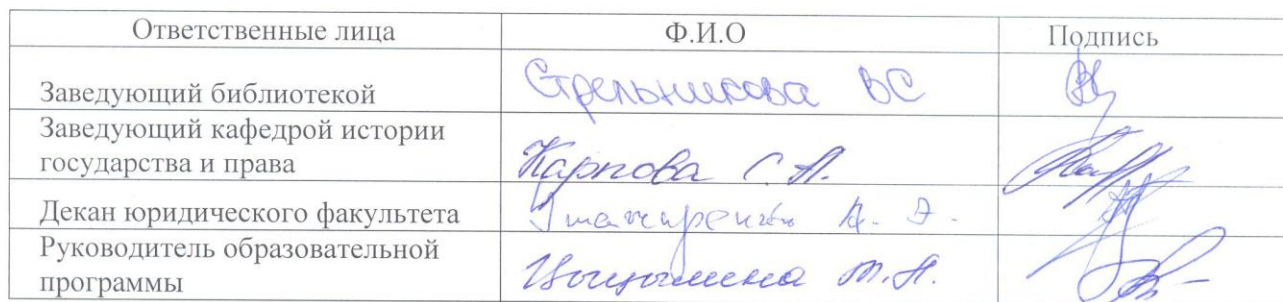 Ответственные лица Ф.И.О Подпись
Заведующий библиотекой Стрельникова ВС
Заведующий кафедрой истории
государства и права Карпова С.А.
Декан юридического факультета А. Э.
Руководитель образовательной
программы М.А.